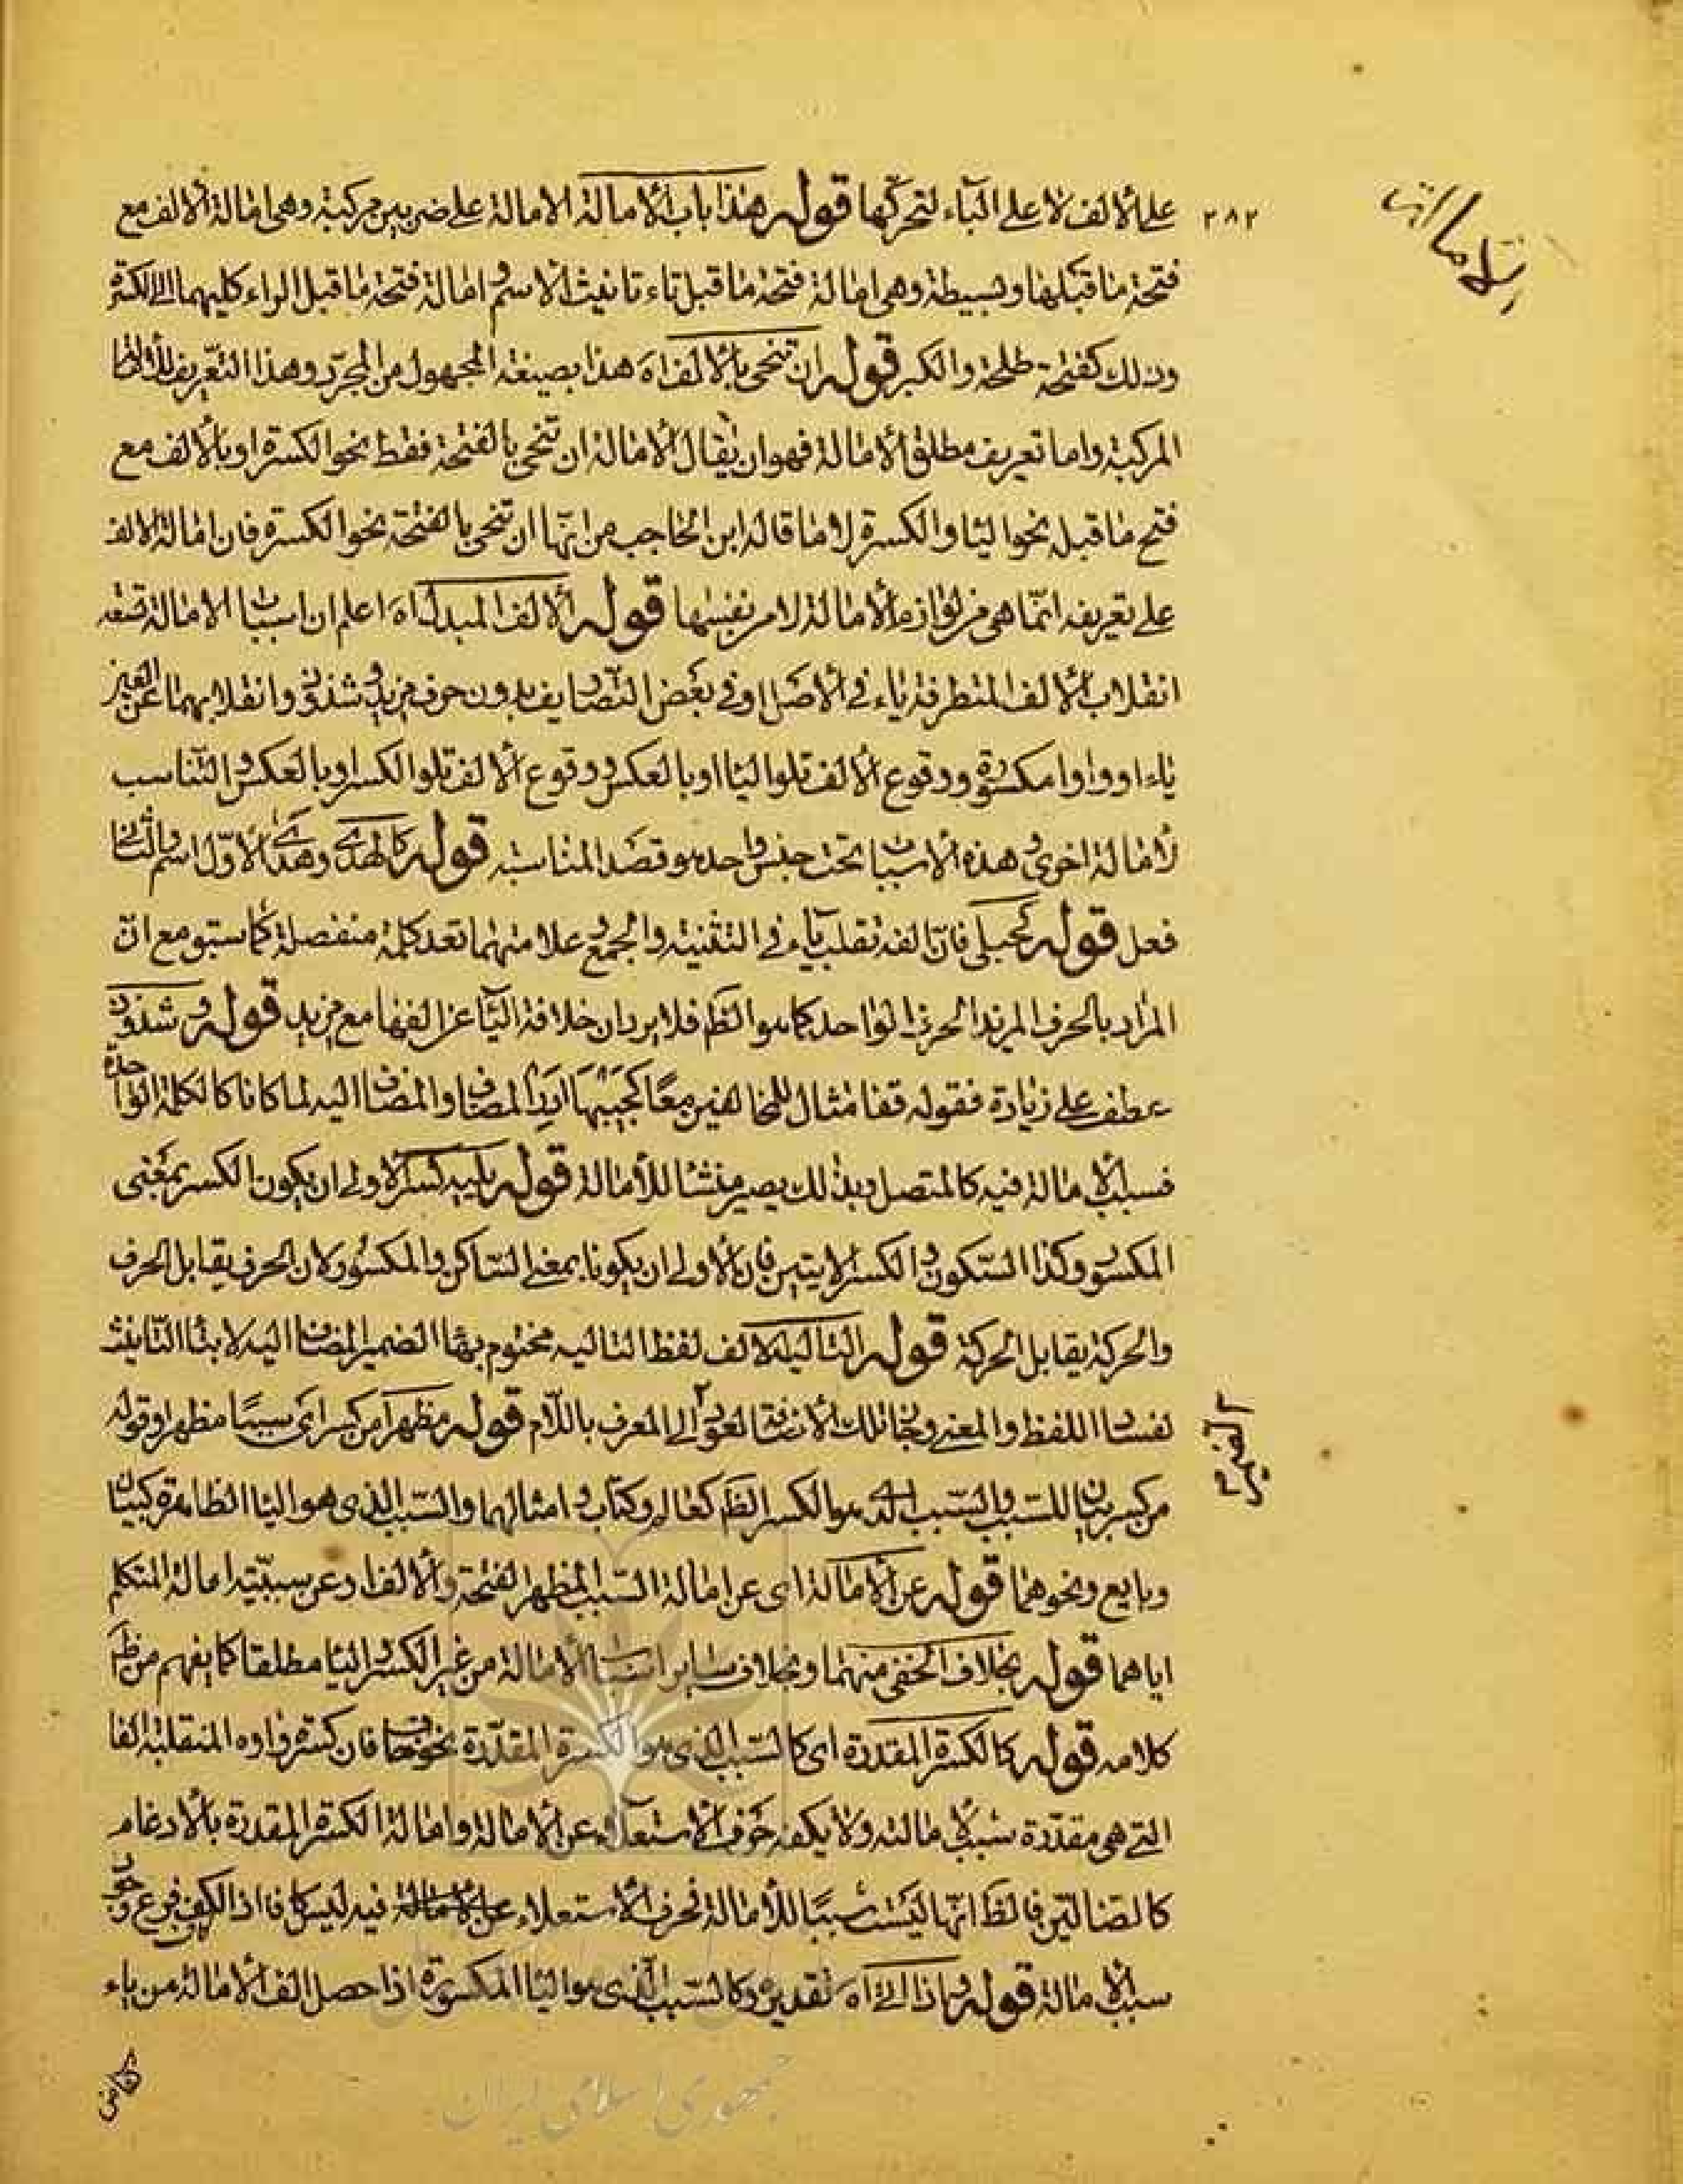 الامالة
٢٨٢
على الالف لا على الياء لتحركها قوله هذا باب الامالة الامالة على ضربين مركبة وهى امالة الالف مع
فتحة ما قبلها وبسيطة وهى امالة فتحة ما قبل تاء تانيث الاسم و امالة فتحة ما قبل الراء كليهما الى الكسرة
وذلك كفتحة طلحة والكبر قوله ان تنحى بالالف اه هذا بصيغة المجهول من المجرد وهذا التعريف للامالة
المركبة واما تعريف مطلق الامالة فهو ان يقال الامالة ان تنحى بالفتحة فقط نحو الكسرة او بالالف مع
فتح ما قبله نحو اليا والكسرة لا ما قاله ابن الحاجب من انها ان تنحى بالفتحة نحو الكسرة فان امالة الالف
على تعريفه انما هى من لوازم الامالة لا من نفسها قوله الالف المبدلة اه اعلم ان اسباب الامالة تسعة
انقلاب الالف المتطرفة ياء فى الاصل او فى بعض التصاريف بدون حرف مزيد و شذوذ وانقلابهما عن العين
ياء او واوا مكسورة ووقوع الالف تلو اليا او بالعكس و وقوع الالف تلو الكسر او بالعكس و التناسب
لامالة اخرى و هذه الاسباب تحت جنس واحد هو قصد المناسبة قوله كالهدى وهدى الاول اسم والثانى
فعل قوله كحبلى فان الفه تقلب ياء فى التثنية والجمع و علامتهما تعد كلمة منفصلة كما سبق مع ان
المراد بالحرف المزيد الحرف الواحد كما هو الظ فلا يرد ان خلافة اليا عن الفها مع مزيد قوله و شذوذ
عطف على زيادة فقوله قفا مثال للمخالفين معا كجيبها ادر المضاف و المضاف اليه لما كانا كالكلمة الواحدة
فسبب الامالة فيه كالمتصل وبذلك يصير منشئا للامالة قوله يليه كسر الاولى ان يكون الكسر بمعنى
المكسور وكذا السكون و الكسر الاتيين فان الاولى ان يكونا بمعنى الساكن والمكسور لان الحرف يقابل الحرف
والحركة يقابل الحركة قوله التاليه الالف لفظ التاليه مختوم بهاء الضمير المضاف اليه لا بتاء التانيث
لفساد اللفظ والمعنى و الى المعرف باللام قوله مظهرا من كسر اى سببا مظهرا وقوله
الضمير
من كسر بيان للسبب والسبب الذى هو الكسر الظ كعالم وكتاب و امثالهما والسبب الذى هو اليا الظاهرة كبيان
وبايع ونحوهما قوله عن الامالة اى عن امالة السبب المظهر الفتحة والالف او عن سببيته امالة المتكلم
اياهما قوله بخلاف الخفى منهما وبخلاف ساير اسباب الامالة من غير الكسر و اليا مطلقا كما يفهم من ظ
كلامه قوله كالكسرة المقدرة اى كالسبب الذى هو الكسرة المقدرة نحو خاف فان كسرة واوه المنقلبة الفا
التى هى مقدرة سبب لامالته ولا يكفه حرف الاستعلاء عن الامالة و امالة الكسرة المقدرة بالادغام
كالضالين فالظ انها ليست سببا للامالة فحرف الاستعلاء فيه ليس كافا اذ الكف فرع وجود
سبب الامالة قوله و اذا الخ اه تقديره وكالسبب الذى هو اليا المكسورة اذا حصل الف الامالة من ياء